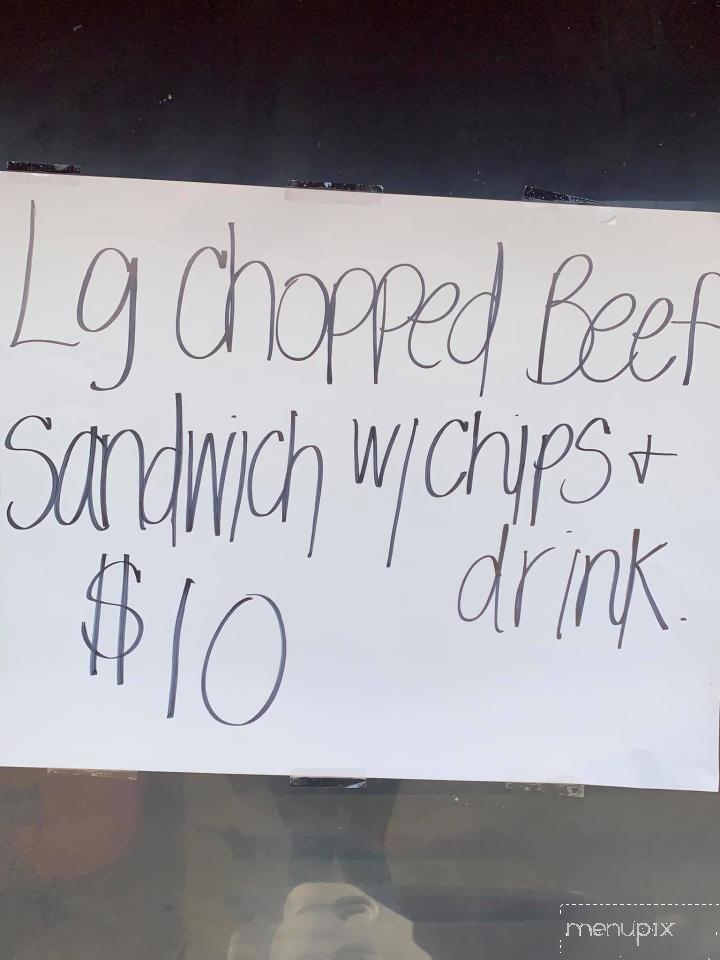 Lg Chopped Beef
Sandwich w/ chips +
drink.
$10
menupix